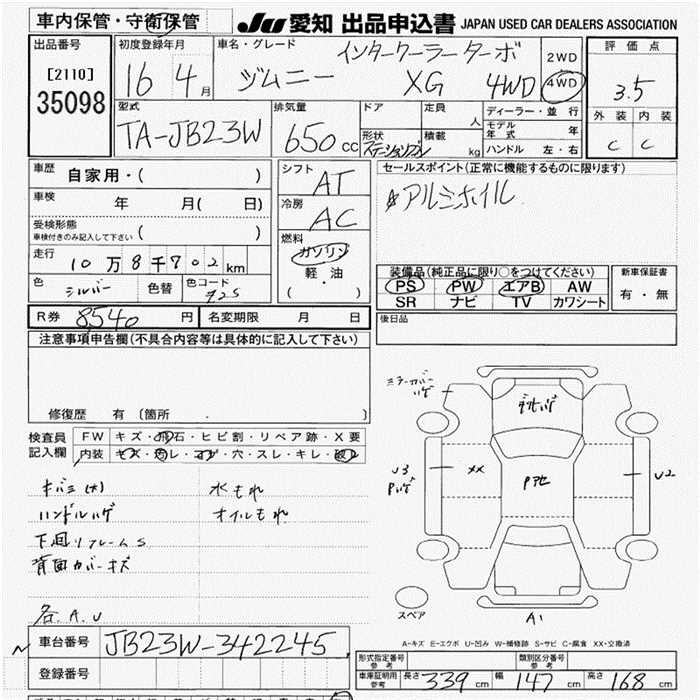 車内保管・守衛保管
JU 愛知 出品申込書 JAPAN USED CAR DEALERS ASSOCIATION
出品番号 [2110] 35098
初度登録年月 16 4月
車名・グレード インタークーラーターボ
ジムニー XG 4WD
2WD
4WD
評価点
3.5
外装 内装
C C
型式 TA-JB23W
排気量 650cc
ドア 定員 人
形状 ステーションワゴン 積載 kg
ディーラー・並行
モデル年式 年
ハンドル 左・右
車歴 自家用・( )
車検 年 月( 日)
受検形態
車検付きのみ記入して下さい ( )
走行 10万8千702km
色 シルバー 色替 色コード
シフト AT
冷房 AC
燃料
ガソリン
軽・油
( ・ )
セールスポイント(正常に機能するものに限ります)
アルミホイル
装備品(純正品に限り○をつけてください)
PS PW エアB AW
SR ナビ TV カワシート
新車保証書
有・無
R券 8540円 名変期限 月 日
後日品
注意事項申告欄(不具合内容等は具体的に記入して下さい)
修復歴 有 〔箇所
検査員記入欄
FW キズ・飛石・ヒビ割・リペア跡・X要
内装 キズ・汚レ・コゲ・穴・スレ・キレ・破レ
キバミ(大) 水もれ
ハンドルハゲ オイルもれ
下回リフレームS
背面カバーキズ
各A.U
ミラーカバーハゲ
XX
U3
Pハゲ
U2
スペア
A1
A-キズ E-エクボ U-凹み W-補修跡 S-サビ C-腐食 XX-交換済
車台番号 JB23W-342245
登録番号
形式指定番号 参考
類別区分番号 参考
車庫証明用 参考 長さ 339cm 幅 147cm 高さ 168cm